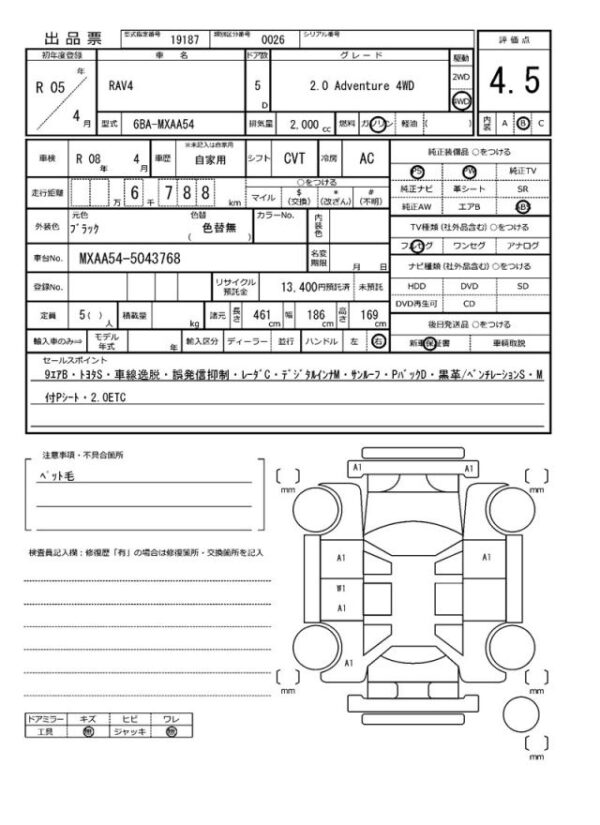 出品票 型式指定番号 19187 類別区分番号 0026 シリアル番号
初年度登録 車名 ドア数 グレード 駆動 評価点
R 05 年 4 月 RAV4 5 D 2.0 Adventure 4WD 2WD 4WD 4.5
型式 6BA-MXAA54 排気量 2,000 cc 燃料 ガソリン 軽油 ( ) 内装 A B C
車検 R 08 年 4 月 車歴 ※未記入は自家用 自家用 シフト CVT 冷房 AC
走行距離 万 6 千 7 8 8 km マイル ○をつける $ (交換) * (改ざん) # (不明)
外装色 元色 ブラック 色替 ( 色替無 ) カラーNo. 内装色
車台No. MXAA54-5043768 名変期限 月 日
登録No. リサイクル預託金 13,400円預託済 未預託
定員 5 ( ) 人 積載量 kg 諸元 長さ 461 cm 幅 186 cm 高さ 169 cm
輸入車のみ⇒ モデル年式 年 輸入区分 ディーラー 並行 ハンドル 左 右
純正装備品 ○をつける
PS PW 純正TV
純正ナビ 革シート SR
純正AW エアB ABS
TV種類 (社外品含む) ○をつける
フルセグ ワンセグ アナログ
ナビ種類 (社外品含む) ○をつける
HDD DVD SD
DVD再生可 CD
後日発送品 ○をつける
新車保証書 車輌取説
セールスポイント
9エアB・トヨタS・車線逸脱・誤発信抑制・レーダC・デジタルインナM・サンルーフ・PバックD・黒革/ベンチレーションS・M
付Pシート・2.0ETC
注意事項・不具合箇所
ペット毛
検査員記入欄:修復歴「有」の場合は修復箇所・交換箇所を記入
A1 A1
mm mm
A1 A1
W1
A1
A1
mm mm
mm
ドアミラー キズ ヒビ ワレ
工具 無 ジャッキ 無